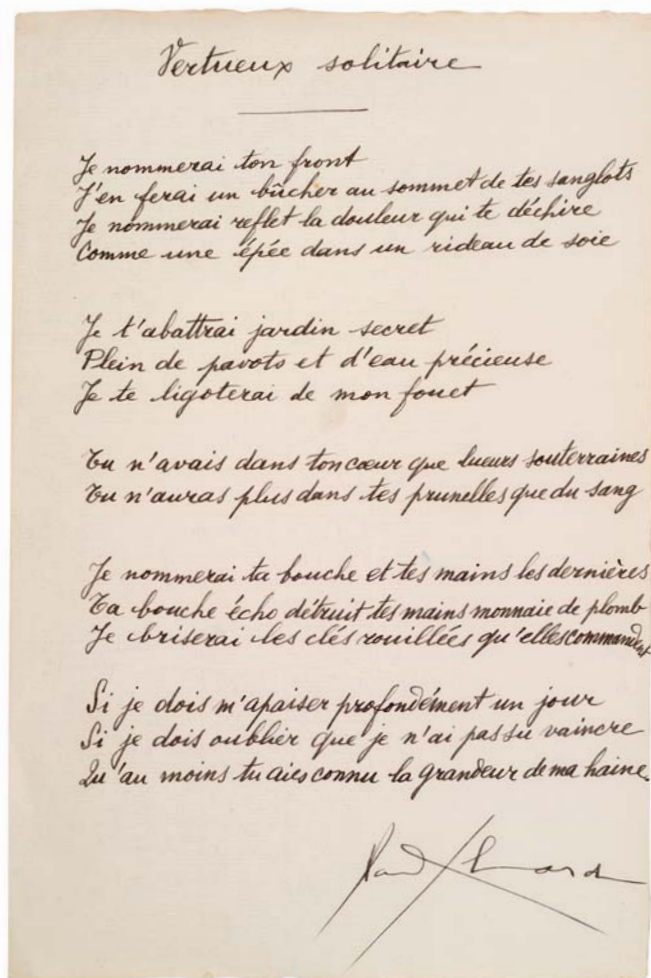 Vertueux solitaire
Je nommerai ton front
J'en ferai un bûcher au sommet de tes sanglots
Je nommerai reflet la douleur qui te déchire
Comme une épée dans un rideau de soie
Je t'abattrai jardin secret
Plein de pavots et d'eau précieuse
Je te ligoterai de mon fouet
Tu n'avais dans ton cœur que lueurs souterraines
Tu n'auras plus dans tes prunelles que du sang
Je nommerai ta bouche et tes mains les dernières
Ta bouche écho détruit tes mains monnaie de plomb
Je briserai les clés rouillées qu'elles commandent
Si je dois m'apaiser profondément un jour
Si je dois oublier que je n'ai pas su vaincre
Qu'au moins tu aies connu la grandeur de ma haine.
Paul Eluard